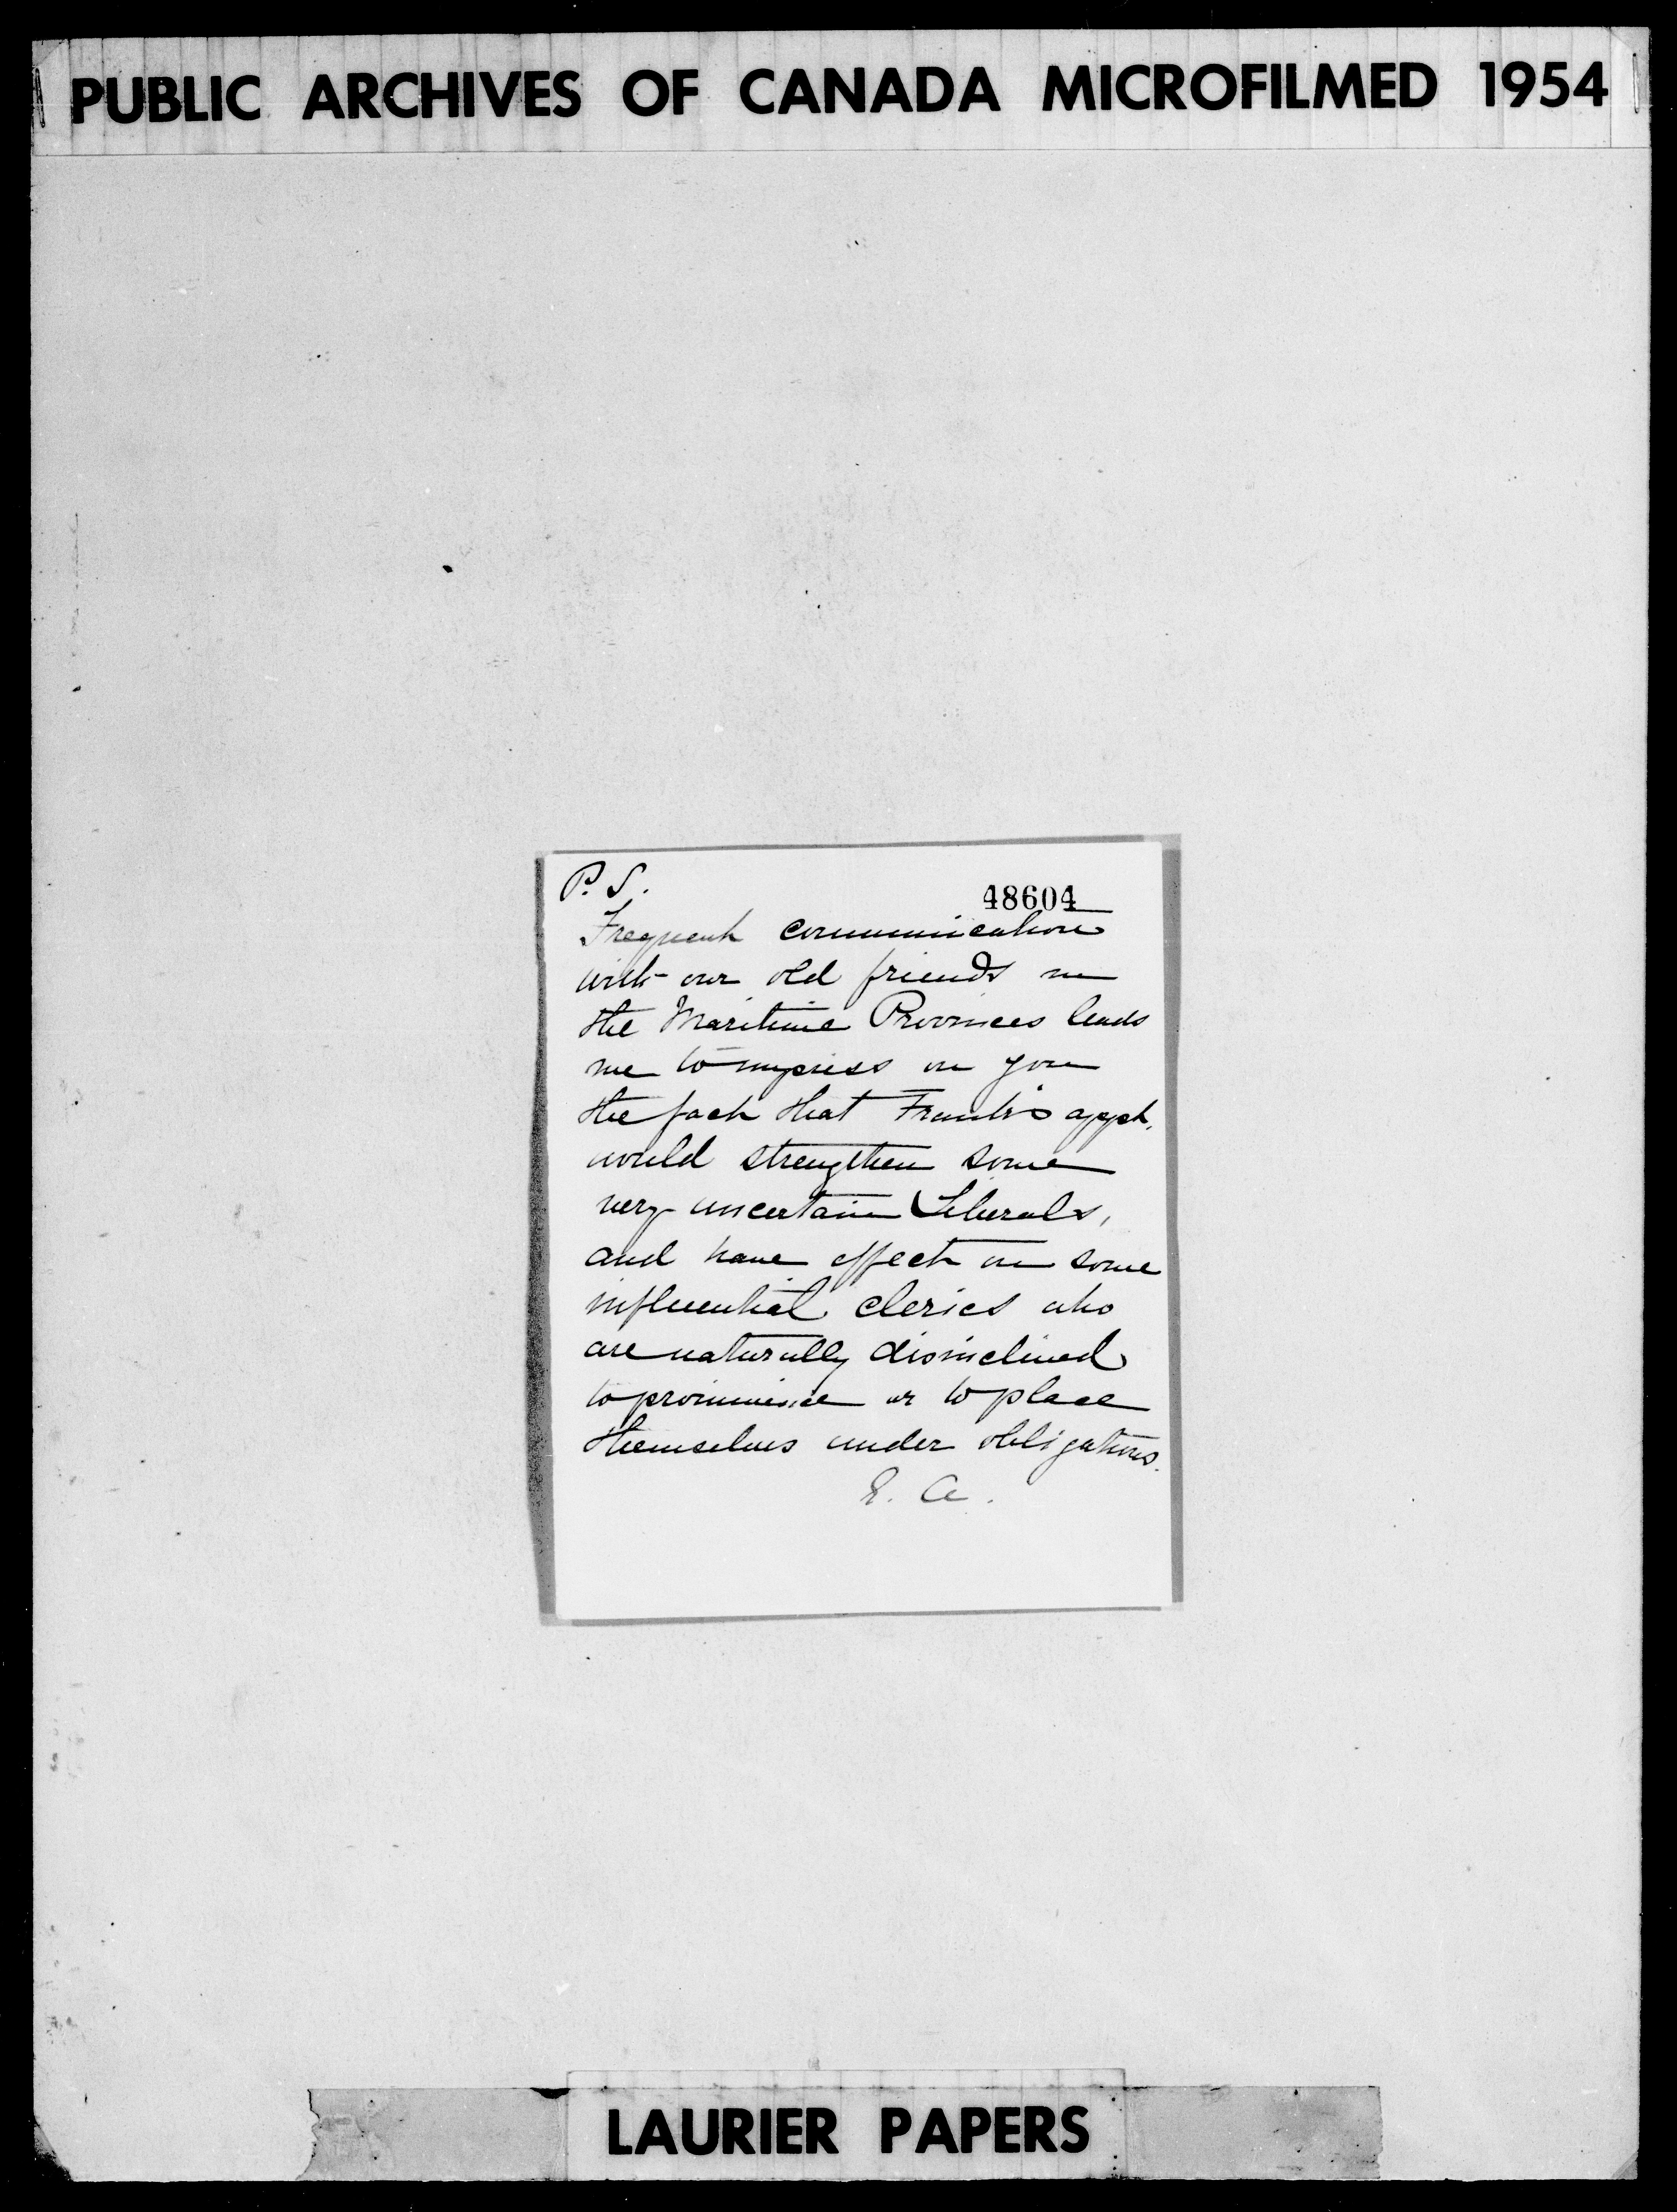 PUBLIC ARCHIVES OF CANADA MICROFILMED 1954
P. S.
48604
Frequent communication
with our old friends in
the Maritime Provinces leads
me to impress on you
the fact that Frank's appt.
would strengthen some
very uncertain Liberals,
and have effect on some
influential clerics who
are naturally disinclined
to prominence or to place
themselves under obligations.
E. A.
LAURIER PAPERS